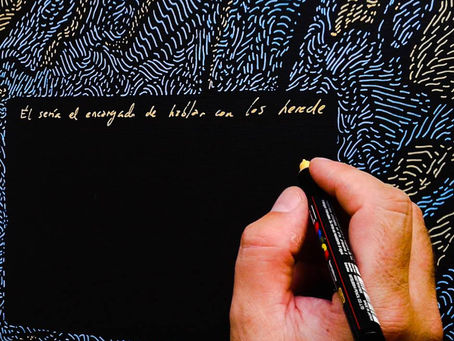 Él sería el encargado de hablar con los herede